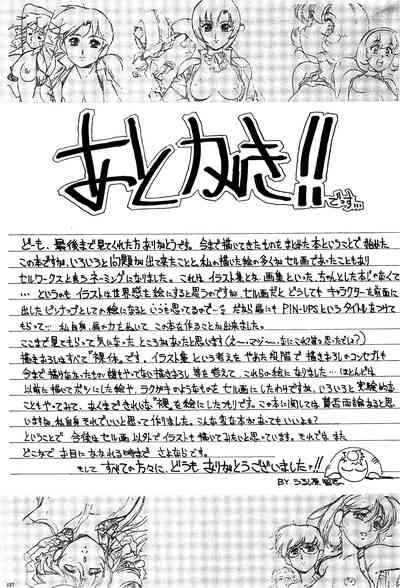 あとがき!!
でも、最後まで見てくれた方ありがとうです。今まで描いてきたものをまとめた本ということで始めた
この本ですが、いろいろと問題が出て来たことと、私の描いた絵の多くがセル画であったこともあり
セルワークスと言うネーミングになりました。これは、イラスト集とか、画集といった、ちゃんとした本じゃなくて
…というのもイラストは世界感を絵にすると思うのですが、セル画だとどうしてもキャラクターを前面に
出したピンナップとしての絵になるという思うてるので…だから扉にもPIN-UPSというタイトルをつけて
もらって…私自身、肩の力をぬいてこの本を作ることが出来ました。
ここまで見てもらって気になったところがあったと思います
描きおろしはすべて"裸体"です。イラスト集という考えをやめた段階で描きおろしのコンセプトも
今まで描けなかったもの
以前に描いてボツにした絵や、ラクガキのようなものをセル画にしたわけですが、いろいろ実験的な
こともやってみて、あくまできれいな"裸"を絵にしたつもりです。この本に関しては賛否両論あると思
いますが、私自身それでいいと思って作りました。こんな変な本があってもいいよね?
ということで今後はセル画以外でイラストも描いてみたいと思っています。それではまた
どこかでお目にかかれる時まで さよならです。
そしてすべての方々に、どうもありがとうございましたァ!!
BY うるし原 智志
127